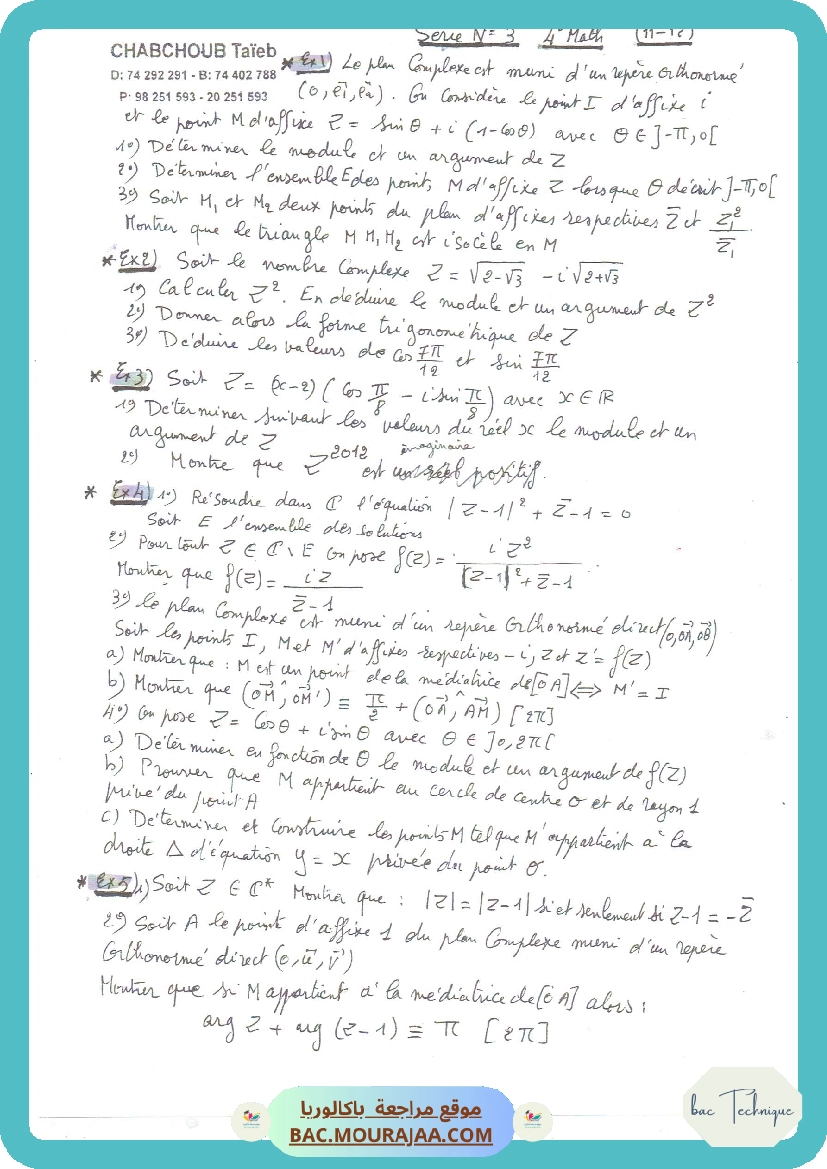 Serie N° 3 4° Math (11-12)
CHABCHOUB Taïeb
D: 74 292 291 - B: 74 402 788
P: 98 251 593 - 20 251 593
* Ex1) Le plan Complexe est muni d'un repère orthonormé
(O, e₁, e₂). On Considère le point I d'affixe i
et le point M d'affixe Z = sinθ + i (1-Cosθ) avec θ ∈ ]-π,0[
1°) Déterminer le module et un argument de Z
2°) Déterminer l'ensemble E des points M d'affixe Z lorsque θ décrit ]-π,0[
3°) Soit M₁ et M₂ deux points du plan d'affixes respectives Z̄ et Z₁²/Z̄₁
Montrer que le triangle M M₁ M₂ est isocèle en M
* Ex2) Soit le nombre Complexe Z = √(2-√3) - i √(2+√3)
1°) Calculer Z². En déduire le module et un argument de Z²
2°) Donner alors la forme trigonométrique de Z
3°) Déduire les valeurs de Cos 7π/12 et sin 7π/12
* Ex3) Soit Z = (x-2) ( Cos π/8 - i sin π/8 ) avec x ∈ ℝ
1°) Déterminer suivant les valeurs du réel x le module et un
argument de Z
2°) Montre que Z^2012 est imaginaire
* Ex4) 1°) Résoudre dans ℂ l'équation |Z-1|² + Z̄-1 = 0
Soit E l'ensemble des solutions
2°) Pour tout Z ∈ ℂ\E on pose f(Z) = iZ² / (|Z-1|²+Z̄-1)
Montrer que f(Z) = iZ / (Z̄-1)
3°) le plan Complexe est muni d'un repère Orthonormé direct (O,OA,OB)
Soit les points I, M et M' d'affixes respectives -i, Z et Z' = f(Z)
a) Montrer que : M est un point de la médiatrice de [OA] ⟺ M' = I
b) Montrer que (OM^,OM') ≡ π/2 + (OA^,AM) [2π]
4°) On pose Z = Cosθ + i sinθ avec θ ∈ ]0,2π[
a) Déterminer en fonction de θ le module et un argument de f(Z)
b) Prouver que M appartient au cercle de centre O et de rayon 1
privé du point A
c) Déterminer et Construire les points M tel que M' appartient à la
droite Δ d'équation y = x privée du point O.
* Ex5) 1) Soit Z ∈ ℂ* Montrer que : |Z| = |Z-1| si et seulement si Z-1 = -Z̄
2°) Soit A le point d'affixe 1 du plan Complexe muni d'un repère
Orthonormé direct (O,u,v)
Montrer que si M appartient à la médiatrice de [OA] alors :
arg Z + arg (Z-1) ≡ π [2π]
bac Technique
موقع مراجعة باكالوريا
BAC.MOURAJAA.COM